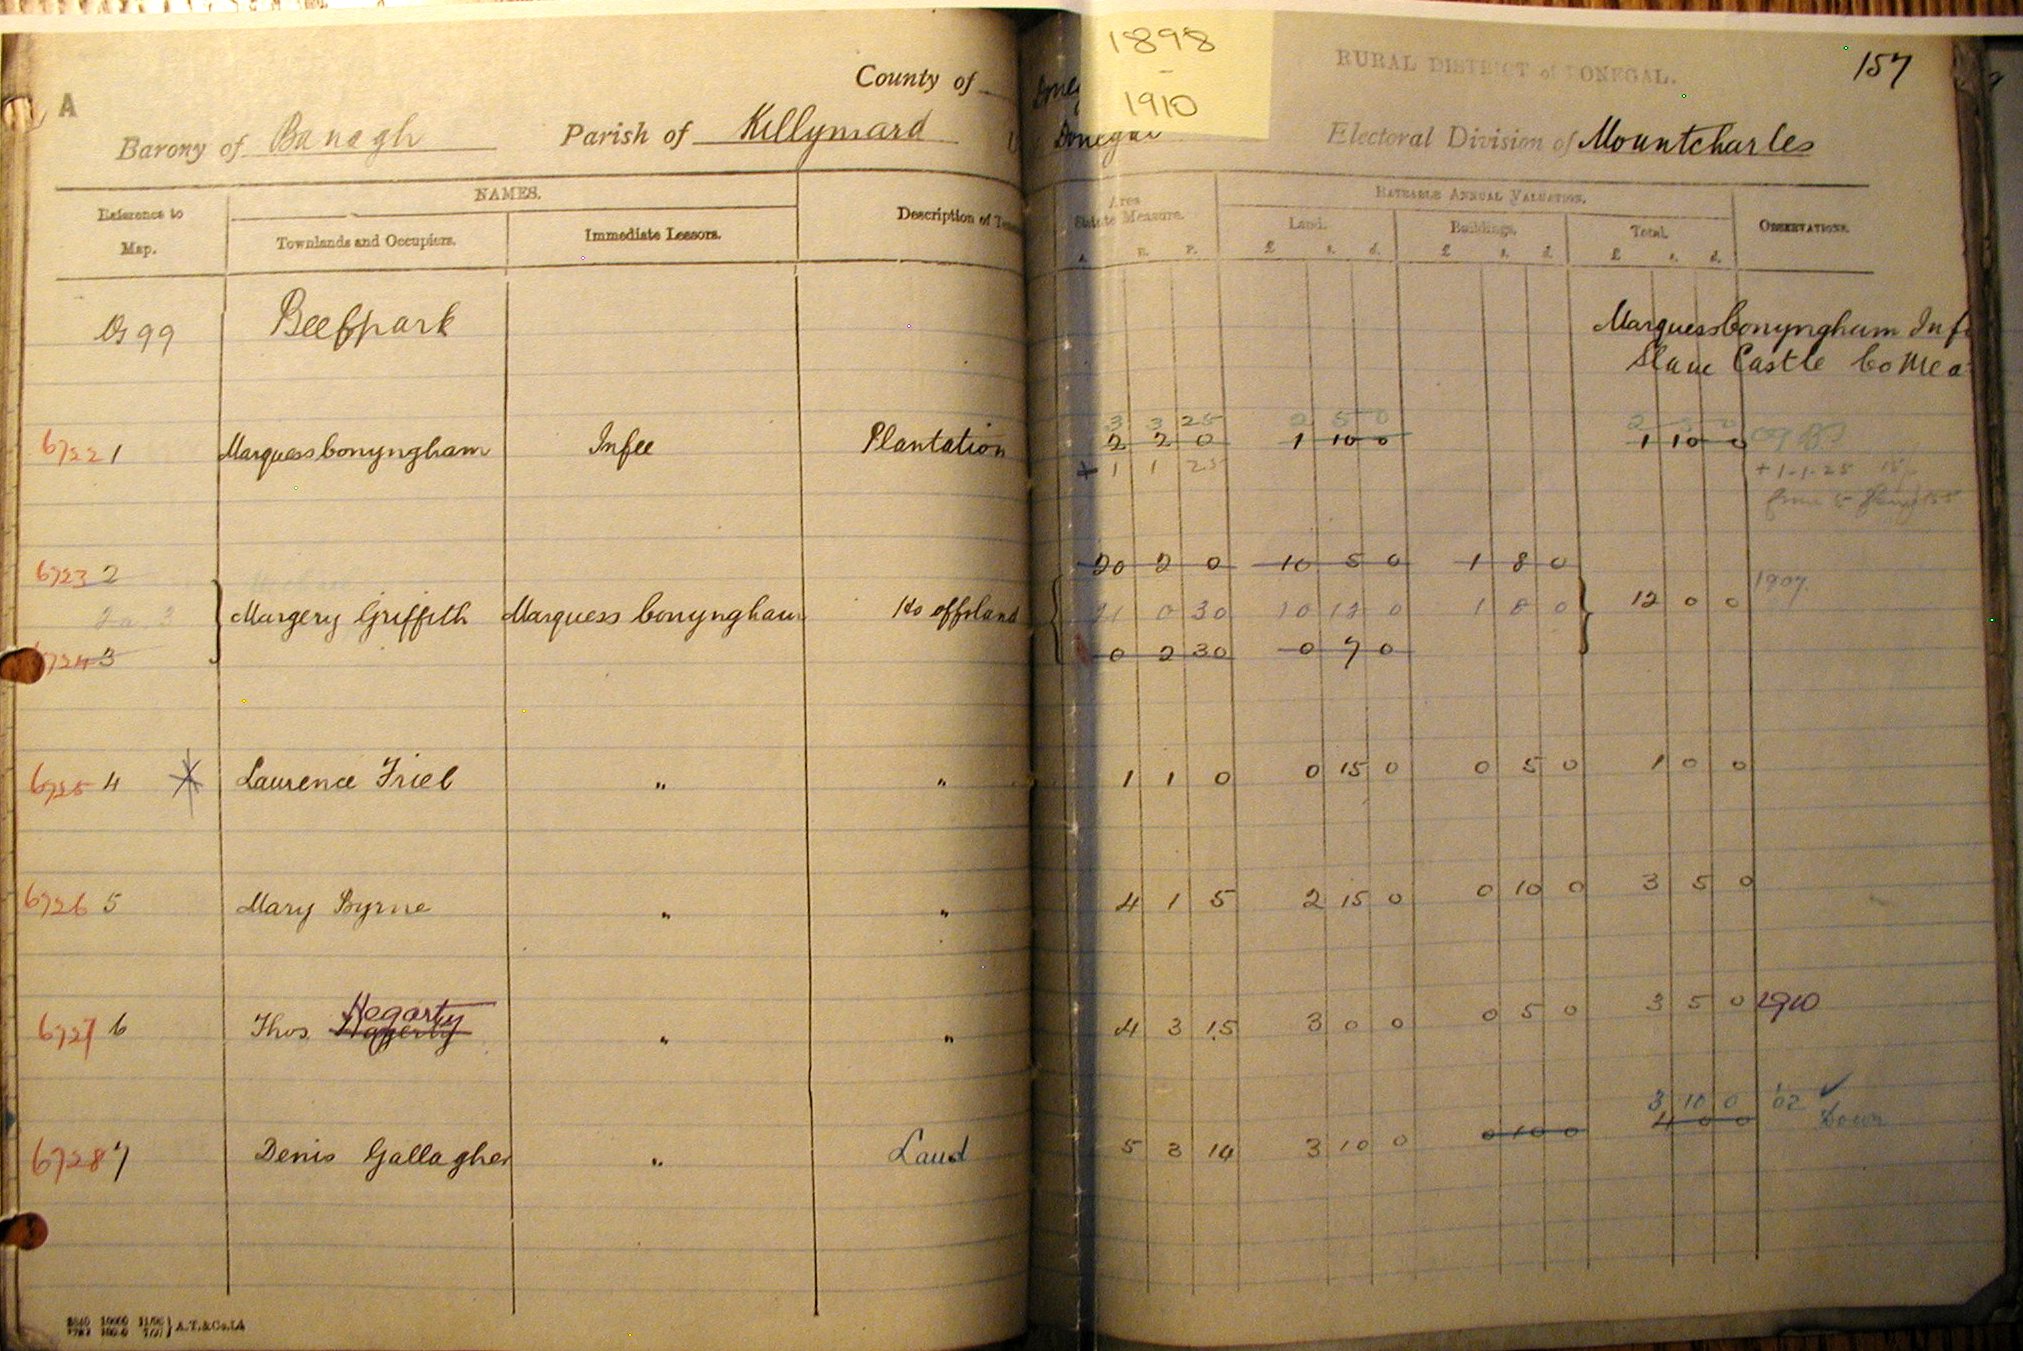 1898
-
1910
RURAL DISTRICT of DONEGAL.
157
A
County of
Barony of Banagh Parish of Killymard Donegal Electoral Division of Mountcharles
Reference to Map. NAMES. Description of Area Statute Measure. RATEABLE ANNUAL VALUATION. OBSERVATIONS.
Townlands and Occupiers. Immediate Lessors. Land. Buildings. Total.
A. R. P. £ s. d. £ s. d. £ s. d.
Os 99 Beefpark Marquess Conyngham Infe
Slane Castle Co Mea
3 3 25 2 5 0 2 5 0
6722 1 Marquess Conyngham Infee Plantation 2 2 0 1 10 0 1 10 0
+ 1 1 25 + 1-1-25
from 5
6723 2 20 2 0 10 5 0 1 8 0
1907
2a 3 Margery Griffith Marquess Conyngham Ho offs land 21 0 30 10 12 0 1 8 0 12 0 0
6724 3 0 2 30 0 7 0
6725 4 Laurence Friel " " 1 1 0 0 15 0 0 5 0 1 0 0
6726 5 Mary Byrne " " 4 1 5 2 15 0 0 10 0 3 5 0
Hegarty
6727 6 Thos Hagerty " " 4 3 15 3 0 0 0 5 0 3 5 0 1910
3 10 0 '02 ✓
6728 7 Denis Gallagher " Land 5 3 14 3 10 0 0 10 0 4 0 0 Down
A.T.&Co.Ld